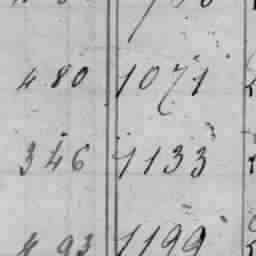 480 1071
346 1133
493 1199